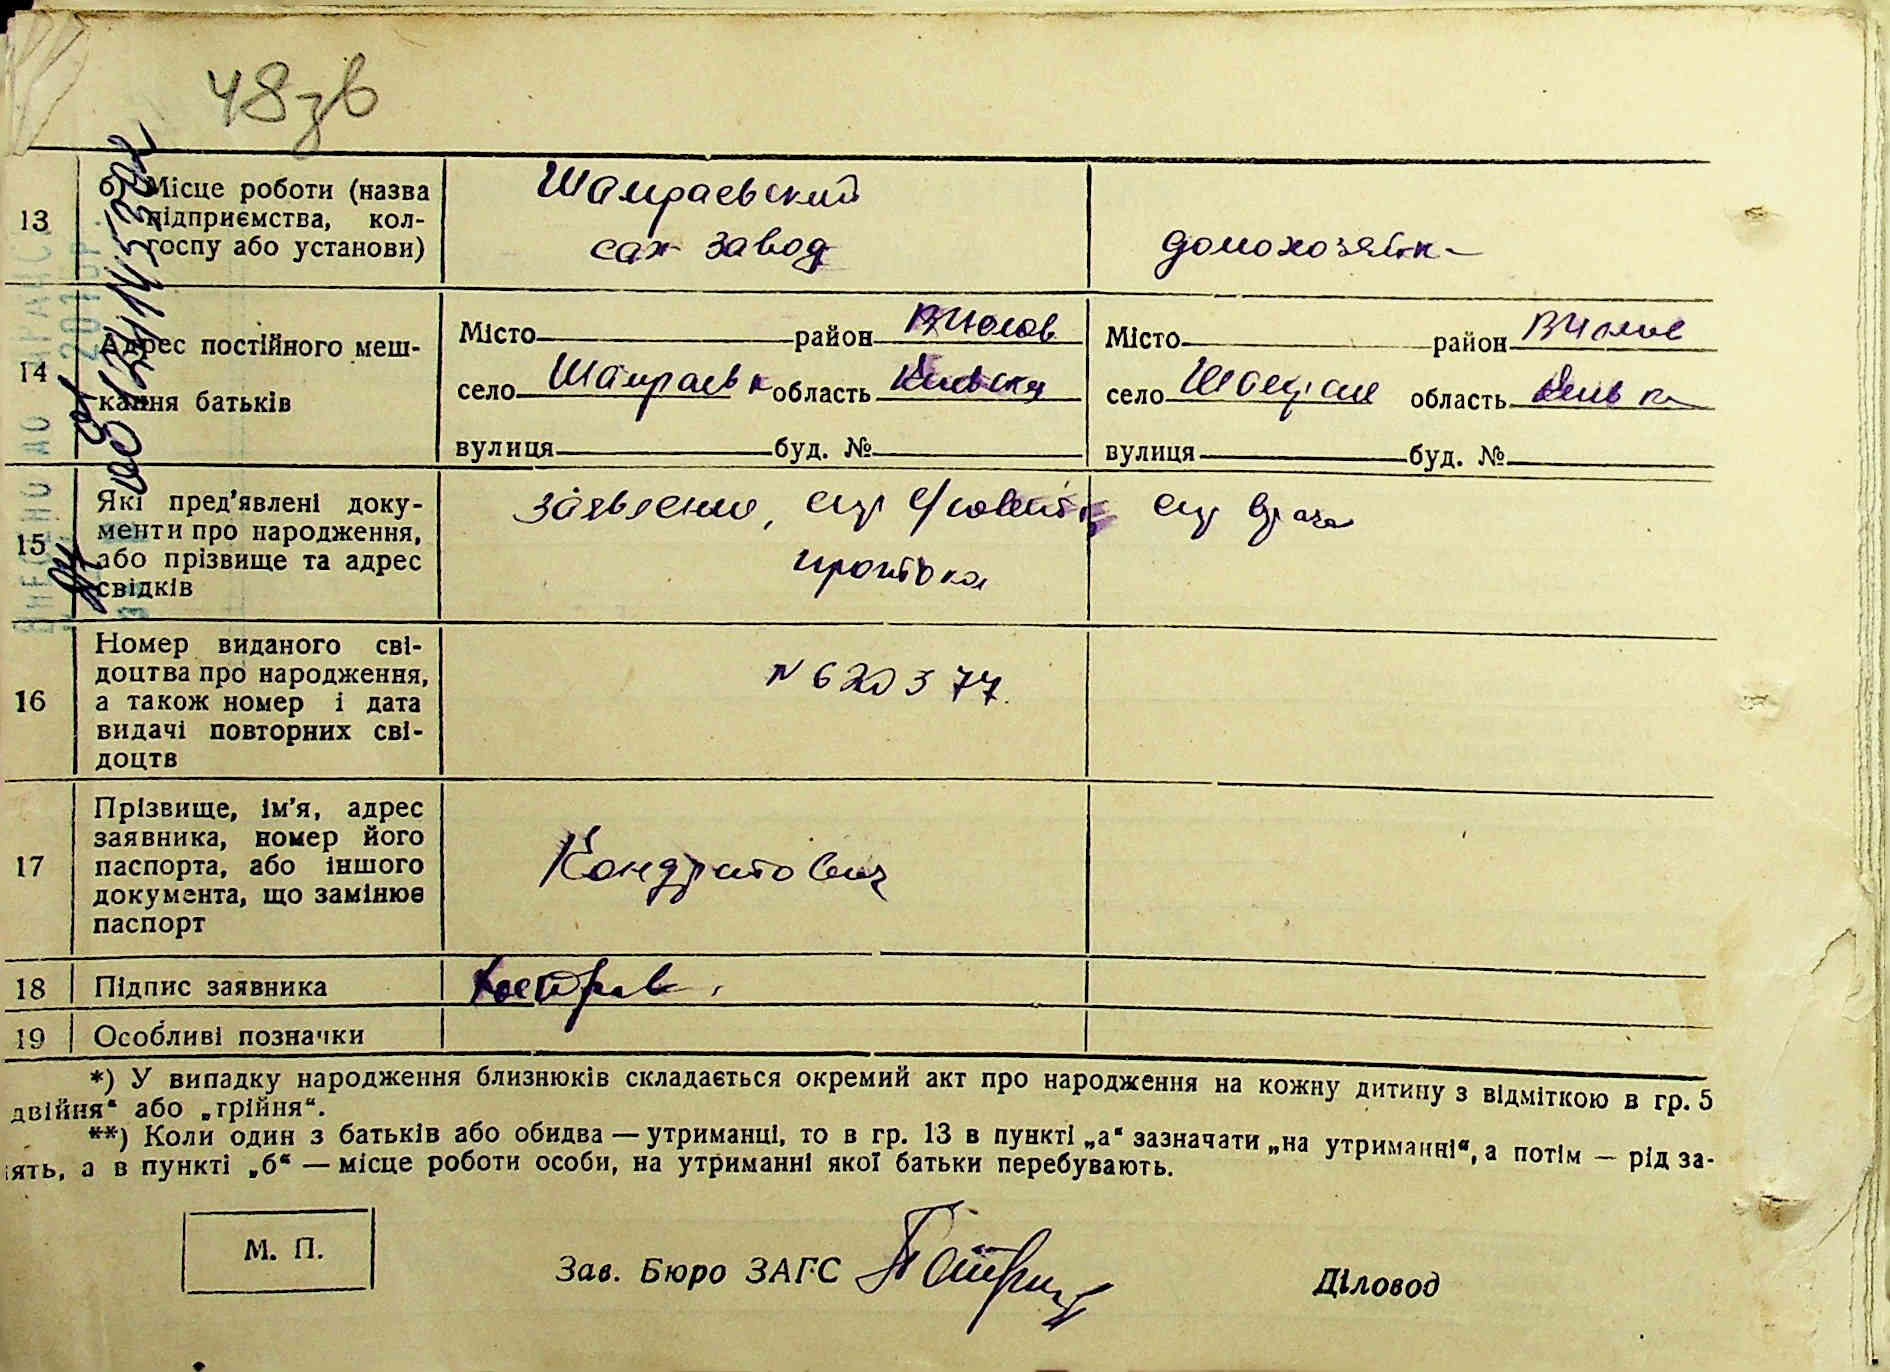 48зв
13 б) Місце роботи (назва підприємства, кол-
госпу або установи)
Шамраевский
сах завод
домохозяйк
14 Адрес постійного меш-
кання батьків
Місто район
село Шамраевк область Киевская
вулиця буд. №
Місто район
село область
вулиця буд. №
15 Які пред'явлені доку-
менти про народження,
або прізвище та адрес
свідків
заявление, спр с/совета спр врача
16 Номер виданого сві-
доцтва про народження,
а також номер і дата
видачі повторних сві-
доцтв
N 620377.
17 Прізвище, ім'я, адрес
заявника, номер його
паспорта, або іншого
документа, що замінює
паспорт
Кондратович
18 Підпис заявника
19 Особливі позначки
*) У випадку народження близнюків складається окремий акт про народження на кожну дитину з відміткою в гр. 5
двійня“ або „трійня“.
**) Коли один з батьків або обидва — утриманці, то в гр. 13 в пункті „а“ зазначати „на утриманні“, а потім — рід за-
ять, а в пункті „б“ — місце роботи особи, на утриманні якої батьки перебувають.
М. П.
Зав. Бюро ЗАГС
Діловод